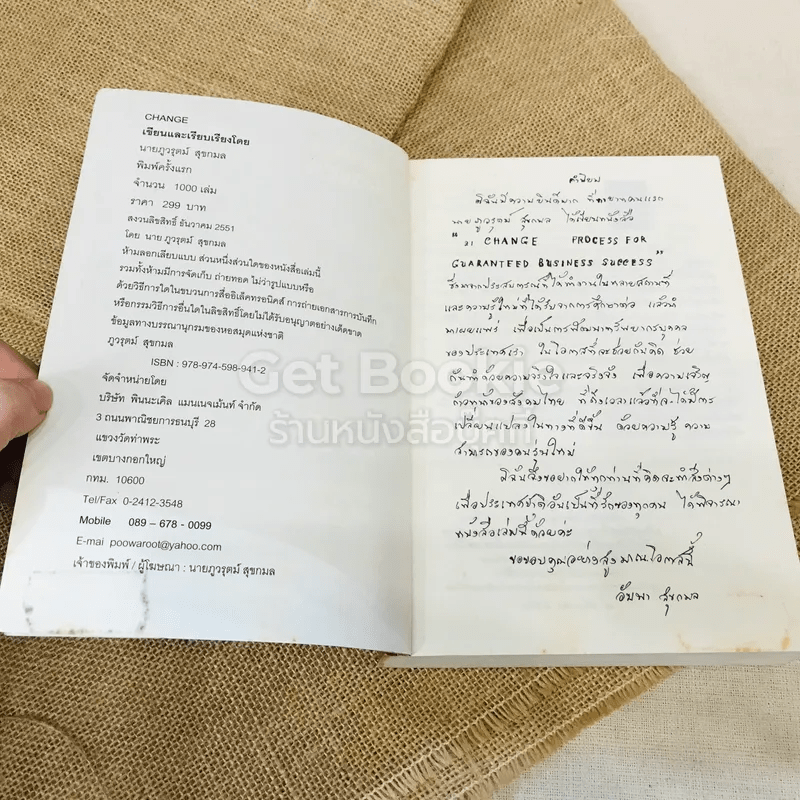 CHANGE
เขียนและเรียบเรียงโดย
นายภูวรุตม์ สุขกมล
พิมพ์ครั้งแรก
จำนวน 1000 เล่ม
ราคา 299 บาท
สงวนลิขสิทธิ์ ธันวาคม 2551
โดย นาย ภูวรุตม์ สุขกมล
ห้ามลอกเลียบแบบ ส่วนหนึ่งส่วนใดของหนังสือเล่มนี้
รวมทั้งห้ามมีการจัดเก็บ ถ่ายทอด ไม่ว่ารูปแบบหรือ
ด้วยวิธีการใดในขบวนการสื่ออิเล็คทรอนิคส์ การถ่ายเอกสารการบันทึก
หรือกรรมวิธีการอื่นใดในลิขสิทธิ์โดยไม่ได้รับอนุญาตอย่างเด็ดขาด
ข้อมูลทางบรรณานุกรมของหอสมุดแห่งชาติ
ภูวรุตม์ สุขกมล
ISBN : 978-974-598-941-2
จัดจำหน่ายโดย
บริษัท พินนะเคิล แมนเนจเม้นท์ จำกัด
3 ถนนพาณิชยการธนบุรี 28
แขวงวัดท่าพระ
เขตบางกอกใหญ่
กทม. 10600
Tel/Fax 0-2412-3548
Mobile 089 – 678 - 0099
E-mai poowaroot@yahoo.com
เจ้าของพิมพ์ / ผู้โฆษณา : นายภูวรุตม์ สุขกมล
คำนิยม
ดิฉันมีความยินดีมาก ที่ทายาทคนแรก
นาย ภูวรุตม์ สุขกมล ได้เขียนหนังสือ
" 21 CHANGE PROCESS FOR
GUARANTEED BUSINESS SUCCESS"
ซึ่งมาจากประสบการณ์ที่ได้ทำงานในหลายสถานที่
และความรู้ใหม่ที่ได้รับจากการศึกษาต่อ แล้วนำ
มาเผยแพร่ เพื่อเป็นการพัฒนาทรัพยากรบุคคล
ของประเทศเรา ในโอกาสที่จะช่วยกันคิด ช่วย
กันทำด้วยความจริงใจและจริงจัง เพื่อความเจริญ
ก้าวหน้าของสังคมไทย ที่ถึงเวลาแล้วที่จะได้มีการ
เปลี่ยนแปลงในทางที่ดีขึ้น ด้วยความรู้ ความ
สามารถของคนรุ่นใหม่
ดิฉันจึงขอยากให้ทุกท่านที่คิดจะทำสิ่งต่างๆ
เพื่อประเทศชาติอันเป็นที่รักของทุกคน ได้พิจารณา
หนังสือเล่มนี้ด้วยค่ะ
ขอขอบคุณอย่างสูงมาณโอกาสนี้
อัมพา สุขกมล
Get Bookie
ร้านหนังสือบุ๊คกี้